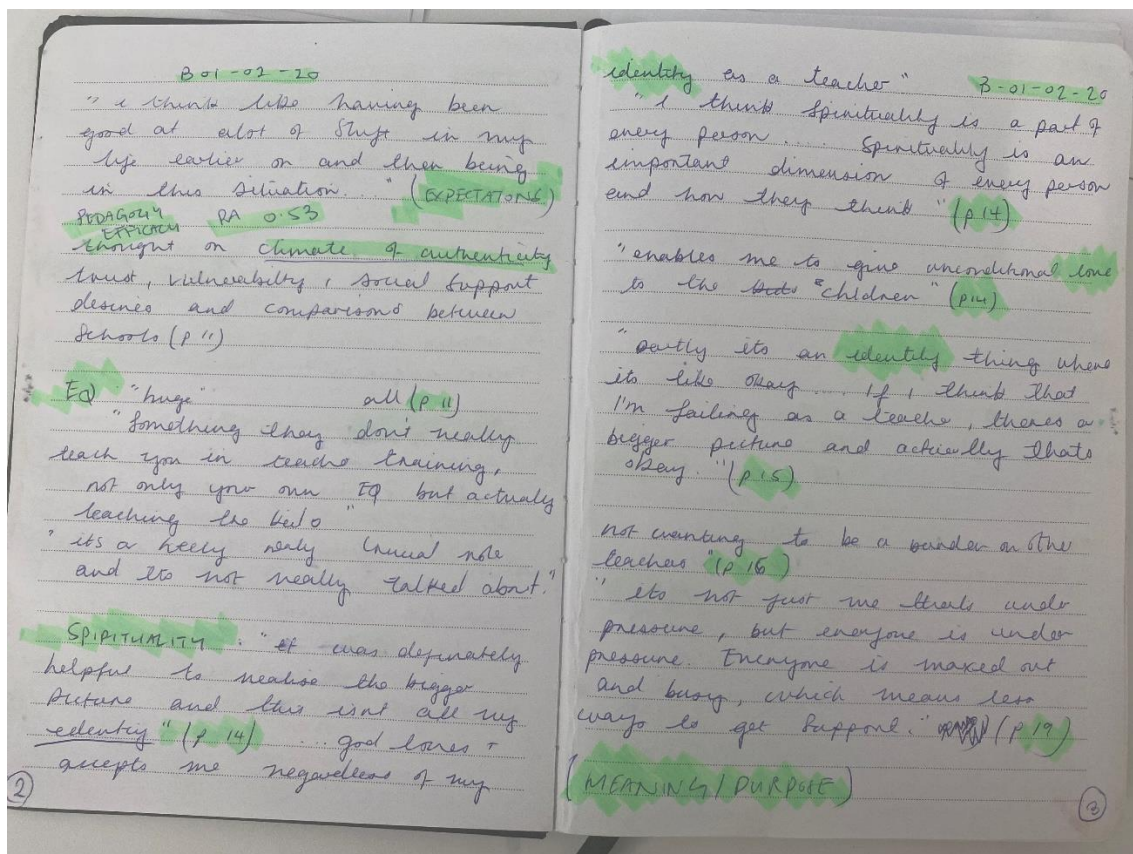 B 01-02-20
" i think like having been
good at alot of Stuff in my
life earlier on and then being
in this situation. " (EXPECTATIONS)
PEDAGOGY EFFICACY RA 0.53
thought on climate of authenticity
trust, vulnerability, social support
desires and comparisons between
Schools (p 11)
EQ "huge" all (p 11)
"Something they don't really
teach you in teache training,
not only your own EQ but actually
teaching the kids"
" its a really really crucial role
and its not really talked about."
SPIRITUALITY : "it was definately
helpful to realise the bigger
picture and this isnt all my
identity" (p 14) ... god loves +
accepts me regardless of my
2
identity as a teacher" B-01-02-20
"I think Spirituality is a part of
every person .... Spirituality is an
important dimension of every person
and how they think" (p 14)
"enables me to give unconditional love
to the "children" (p14)
"partly its an identity thing where
its like okay .... If i think that
I'm failing as a teache, theres a
bigger picture and actually thats
okay." (p 15)
not wanting to be a burden on other
teachers "(p 16)
" its not just me thats under
pressure, but everyone is under
pressure. Everyone is maxed out
and busy, which means less
ways to get support." (p 19)
(MEANING / PURPOSE)
3